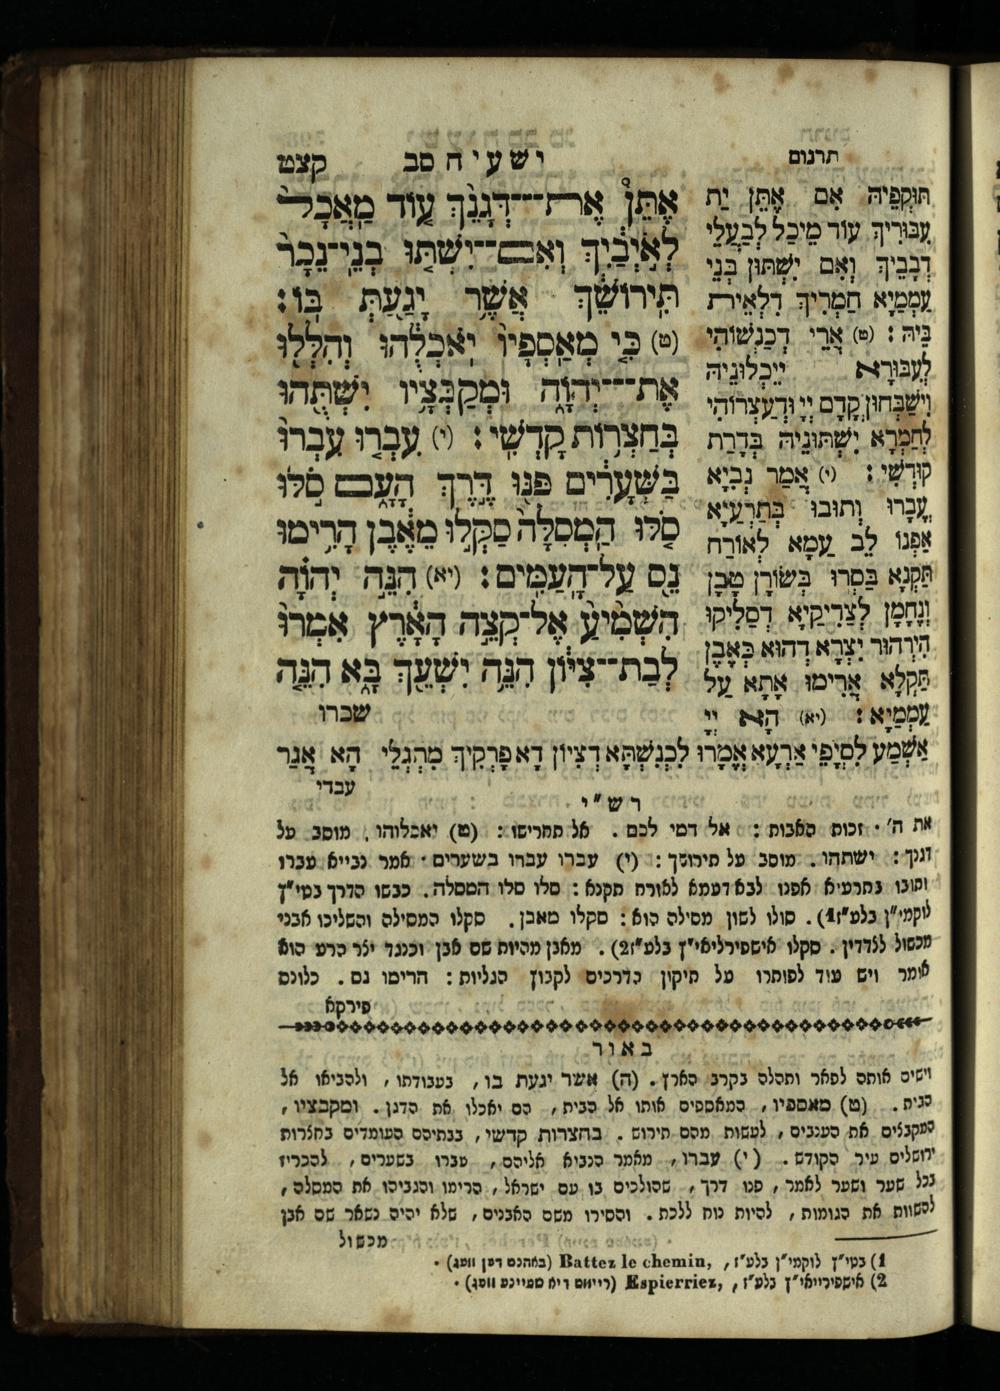 תרגום
ישעיה סב
קצט
תּוּקְפֵיהּ אִם אֶתֵּן יַת
עִבּוּרִיךְ עוֹד מֵיכַל לְבַעֲלֵי
דְבָבֵיךְ וְאִם יִשְׁתּוּן בְּנֵי
עַמְמַיָא חַמְרִיךְ דִלְאֵירת
בֵּיהּ: (ט) אֲרֵי דְכַנְשׁוֹהִי
לְעִבּוּרָא יֵיכְלוּנֵיהּ
וִישַׁבְּחוּן קֳדָם יְיָ וּדְעַצְרוֹהִי
לְחַמְרָא יִשְׁתּוּנֵיהּ בְּדָרַת
קוּדְשִׁי: (י) אֲמַר נְבִיָא
עֲבָרוּ וְתוּבוּ בְּתַרְעַיָא
אַפְנוּ לֵב עַמָא לְאוֹרַח
תַּקְנָא בַּסְרוּ בְּשׂוֹרָן טָבָן
וְנֶחָמָן לְצַדִיקַיָא דְסַלִיקוּ
הִירְהוּר יִצְרָא דְהוּא כְּאֶבֶן
תַּקְלָא אֲרִימוּ אָתָא עַל
עַמְמַיָא: (יא) הָא יְיָ
אֶתֵּן אֶת־דְּגָנֵךְ עוֹד מַאֲכָל
לְאֹיְבַיִךְ וְאִם־יִשְׁתּוּ בְנֵי־נֵכָר
תִּירוֹשֵׁךְ אֲשֶׁר יָגַעַתְּ בּוֹ:
(ט) כִּי מְאַסְפָיו יֹאכְלֻהוּ וְהִלְלוּ
אֶת־יְהוָה וּמְקַבְּצָיו יִשְׁתֻּהוּ
בְּחַצְרוֹת קָדְשִׁי: (י) עִבְרוּ עִבְרוּ
בַּשְּׁעָרִים פַּנּוּ דֶּרֶךְ הָעָם סֹלּוּ
סֹלּוּ הַמְסִלָּה סַקְּלוּ מֵאֶבֶן הָרִימוּ
נֵס עַל־הָעַמִּים: (יא) הִנֵּה יְהוָה
הִשְׁמִיעַ אֶל־קְצֵה הָאָרֶץ אִמְרוּ
לְבַת־צִיּוֹן הִנֵּה יִשְׁעֵךְ בָּא הִנֵּה
שכרו
אַשְׁמַע לִסְיָפֵי אַרְעָא אֱמָרוּ לִכְנִשְׁתָּא דְצִיוֹן דָא פָרְקִיךְ מִתְגְלֵי הָא אֲגַר
עבדי
רש"י
את ה'. זכות האבות: אל דמי לכם. אל תחרישו: (ט) יאכלוהו. מוסב על
דגנך: ישתהו. מוסב על תירושך: (י) עברו עברו בשערים. אמר נבייא עברו
ותובו בתרעיא אפנו לבא דעמא לאורח תקנא: סלו סלו המסלה. כבשו הדרך בטי"ץ
לוקמי"ן בלע"ז1). סולו לשון מסילה הוא: סקלו מאבן. סקלו המסילה והשליכו אבני
מכשול לצדדין. סקלו אישפירליאי"ץ בלע"ז2). מאבן מהיות שם אבן וכנגד יצר הרע הוא
אומר ויש עוד לפותרו על תיקון הדרכים לקבוץ הגליות: הרימו נס. כלונס
פירקא
באור
וישים אותה לפאר ותהלה בקרב הארץ. (ה) אשר יגעת בו, בעבודתו, ולהביאו אל
הבית. (ט) מאספיו, המאספים אותו אל הבית, הם יאכלו את הדגן. ומקבציו,
המקבצים את הענבים, לעשות מהם תירוש. בחצרות קדשי, בבתיהם העומדים בחצרות
ירושלים עיר הקודש. (י) עברו, מאמר הנביא אליהם, עברו בשערים, להכריז
בכל שער ושער לאמר, פנו דרך, שהולכים בו עם ישראל, הרימו והגביהו את המסלה,
להשוות את הגומות, להיות נוח ללכת. והסירו משם האבנים, שלא יהיה נשאר שם אבן
מכשול
1) בטי"ץ לוקמי"ן בלע"ז, Battez le chemin, (באהנט דען וועג).
2) אישפירייאי"ץ בלע"ז, Espierriez, (רייומט דיא שטיינע וועג).